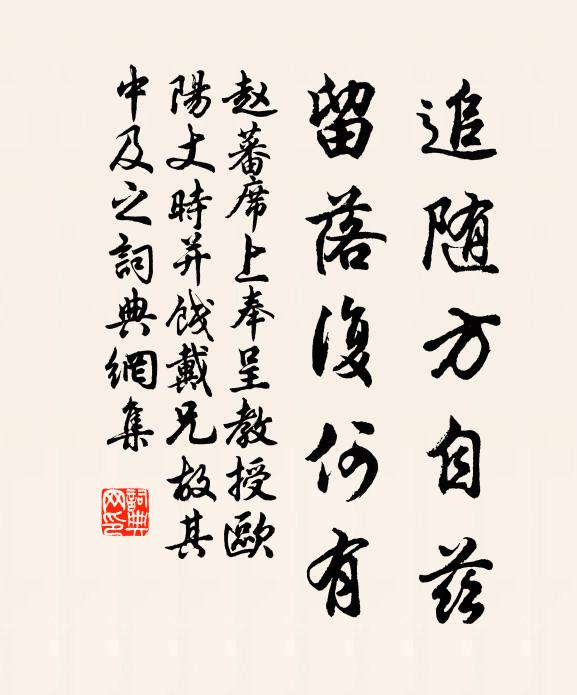 追随方自茲
留落復何有
赵蕃席上奉呈教授歐
陽丈時并餞戴兄故其
中及之詞典網集
詞典
网印